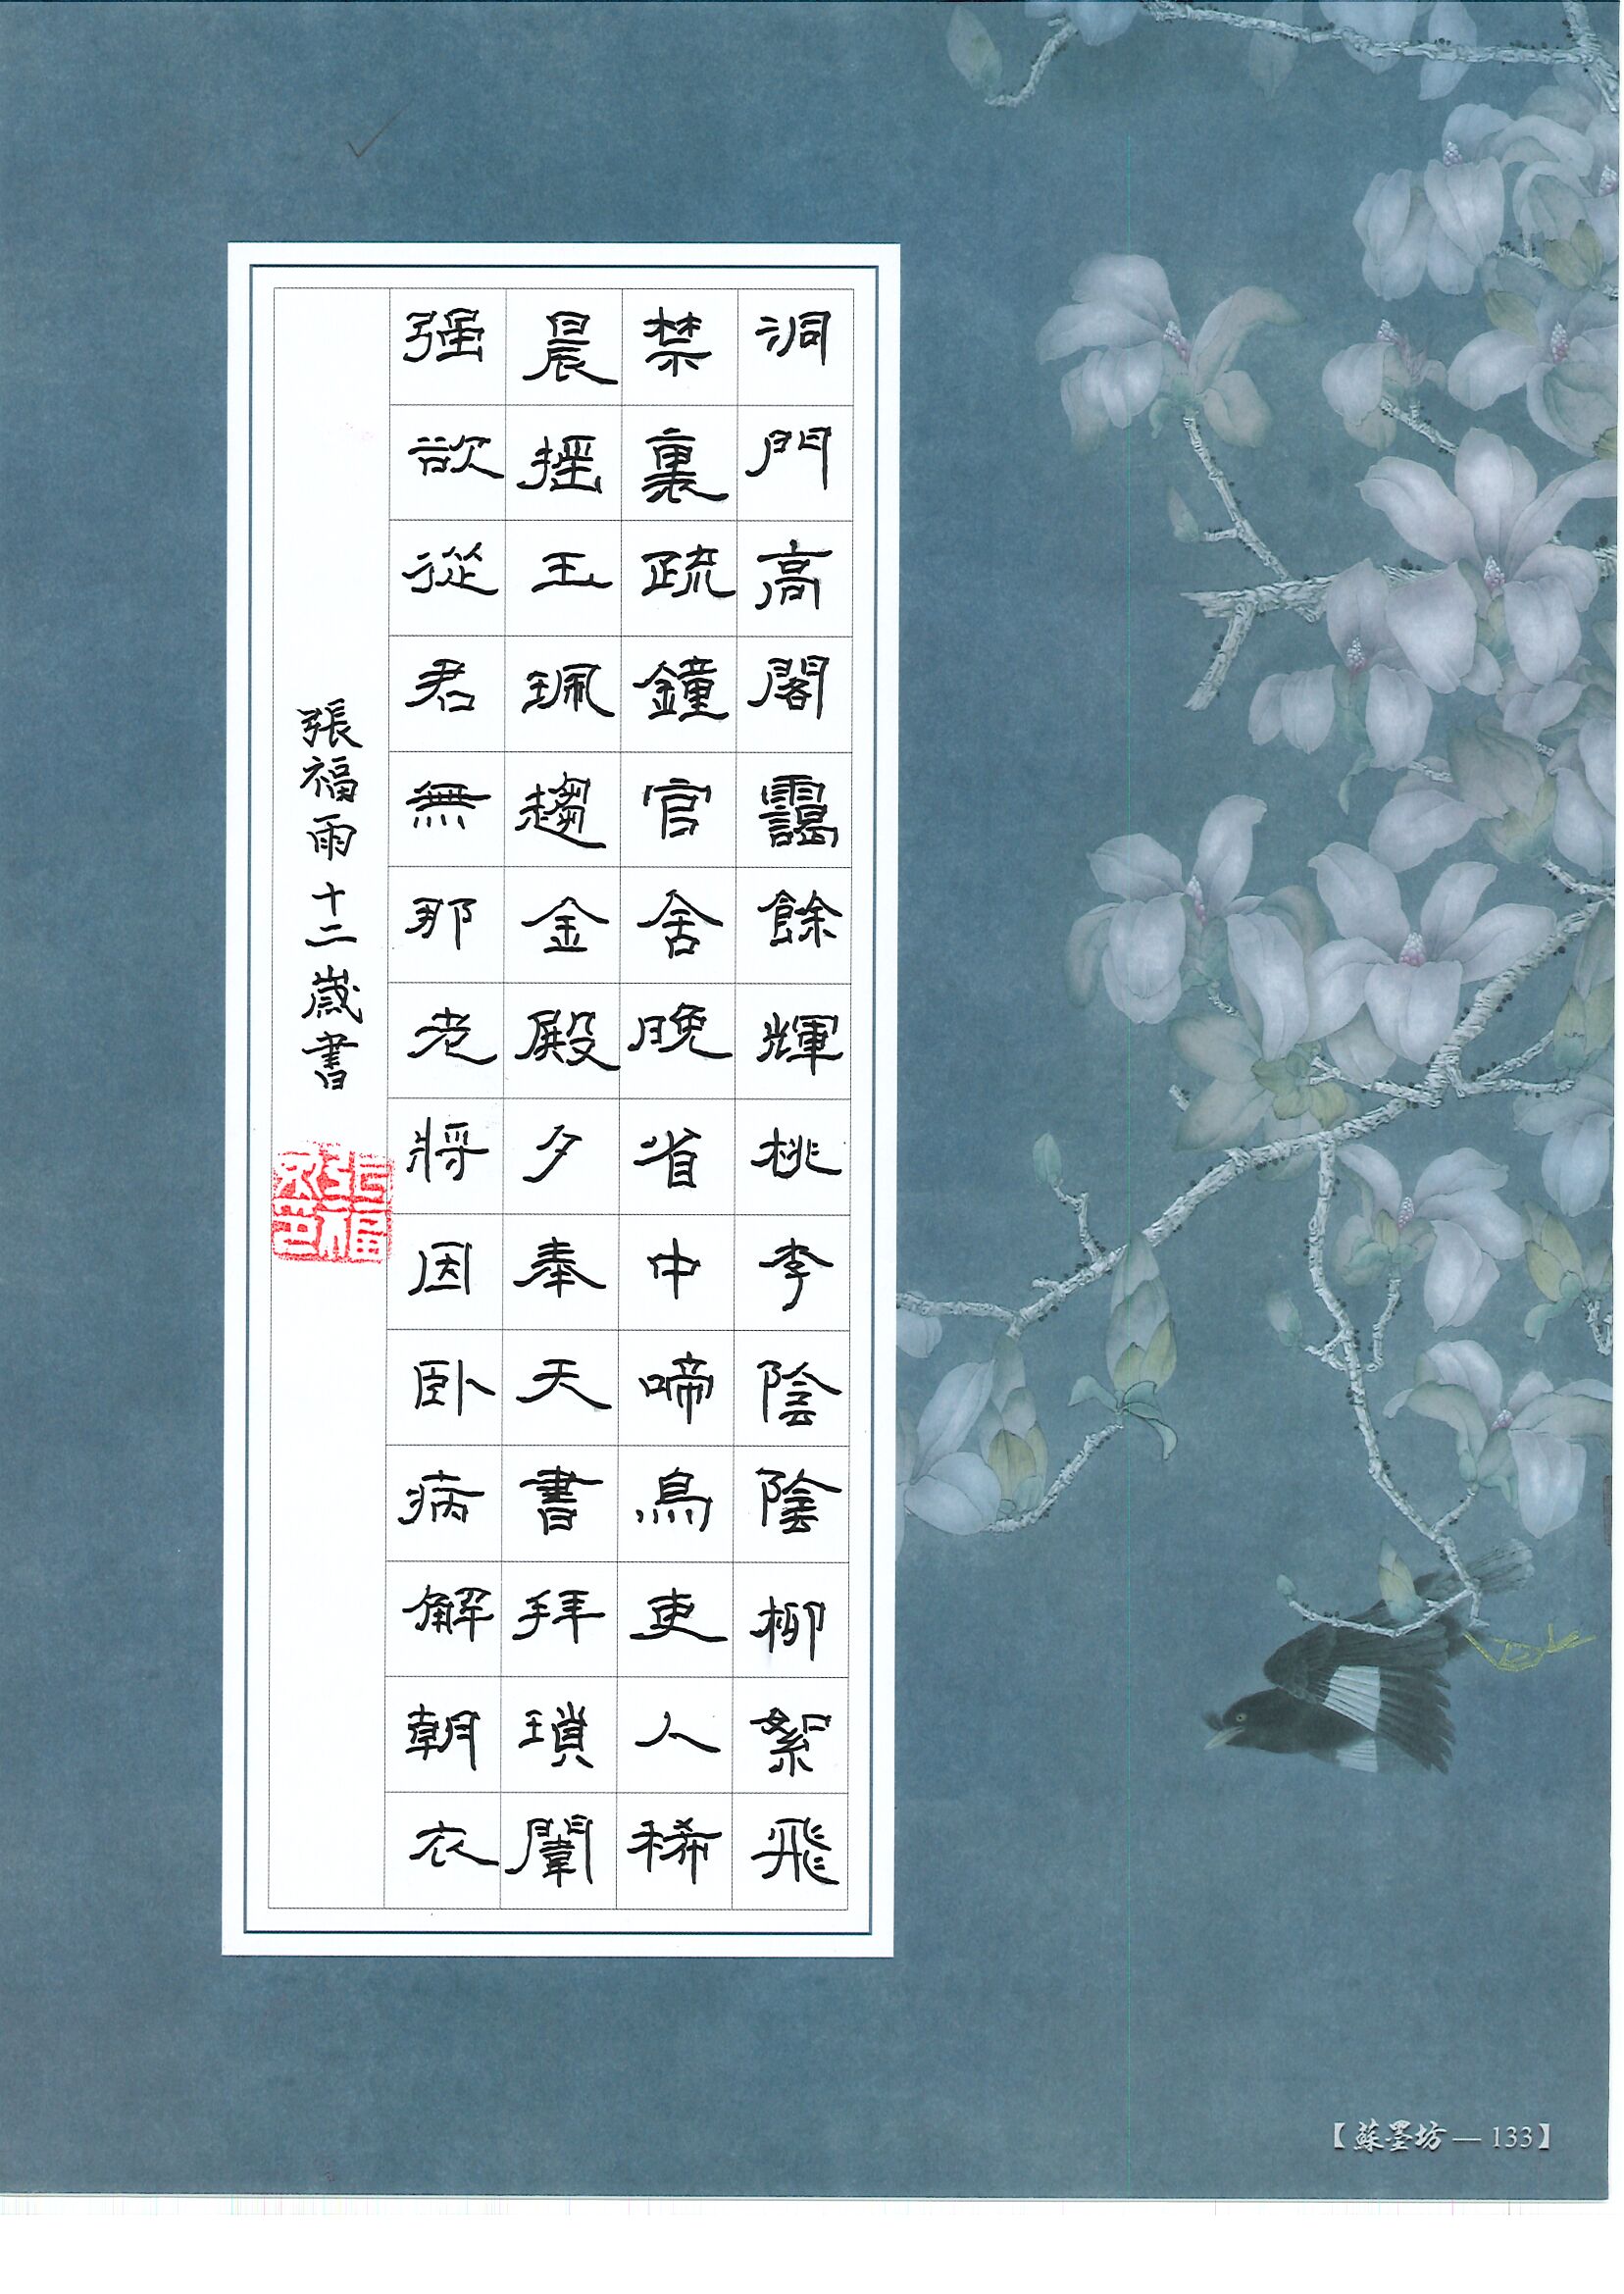 洞門高閣靄餘輝桃李陰陰柳絮飛
禁裏疏鐘官舍晚省中啼鳥吏人稀
晨摇玉珮趨金殿夕奉天書拜瑣闈
强欲從君無那老將因卧病解朝衣
張福雨十二歲書
【蘇墨坊—133】